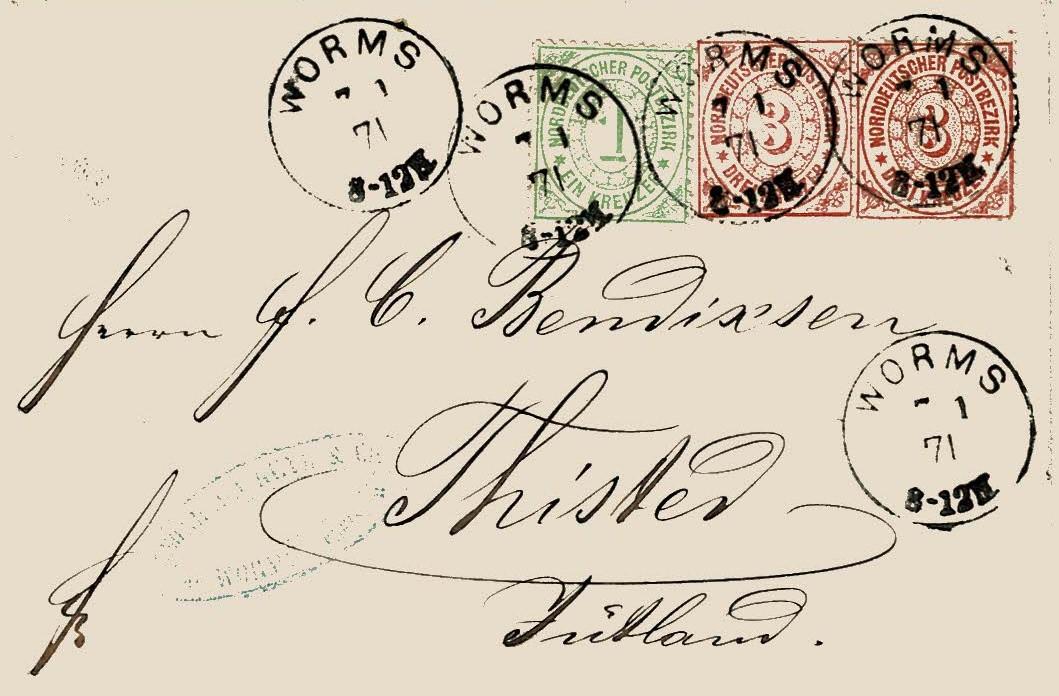 WORMS
7 1
71
8-12V
WORMS
7 1
71
8-12V
NORDDEUTSCHER POSTBEZIRK
1
EIN KREUZER
WORMS
7 1
71
8-12V
NORDDEUTSCHER POSTBEZIRK
3
DREI KREUZER
WORMS
7 1
71
8-12V
NORDDEUTSCHER POSTBEZIRK
3
DREI KREUZER
Herrn H. C. Bendixsen
WORMS
7 1
71
8-12V
Thisted
WORMS
fr
Jütland.